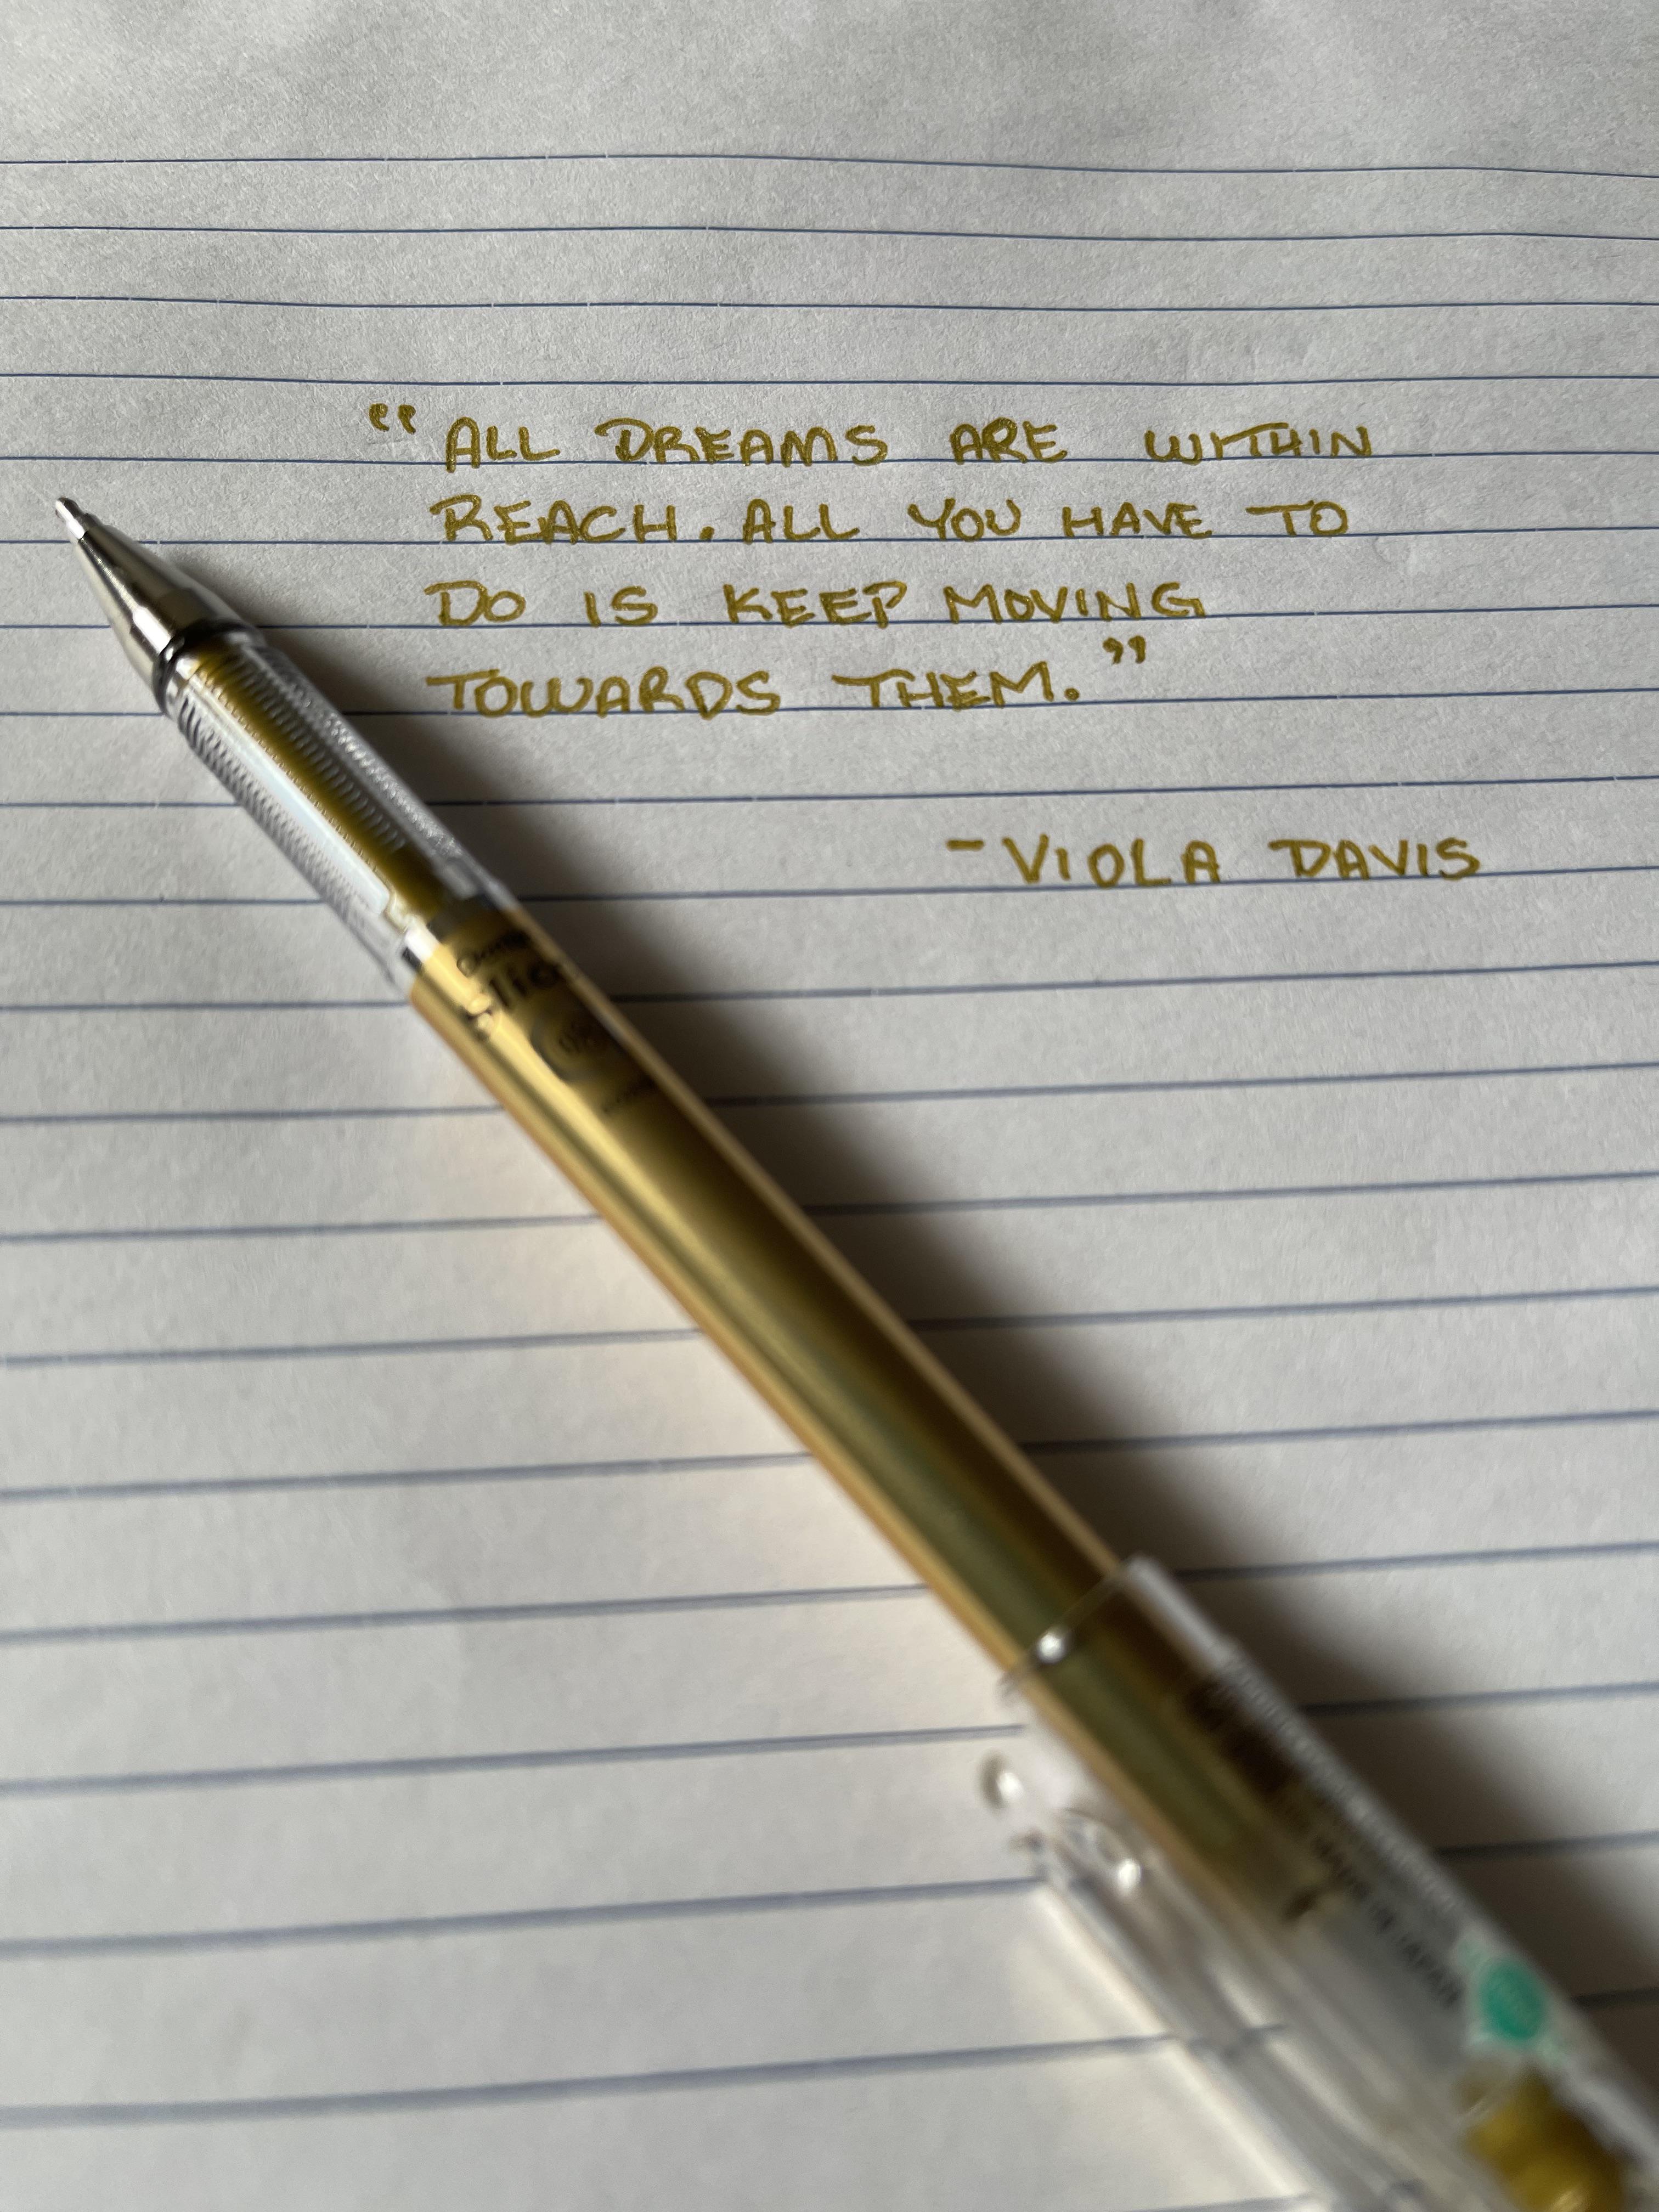 “ALL DREAMS ARE WITHIN
REACH. ALL YOU HAVE TO
DO IS KEEP MOVING
TOWARDS THEM.”
-VIOLA DAVIS
Slicci
MADE IN JAPAN